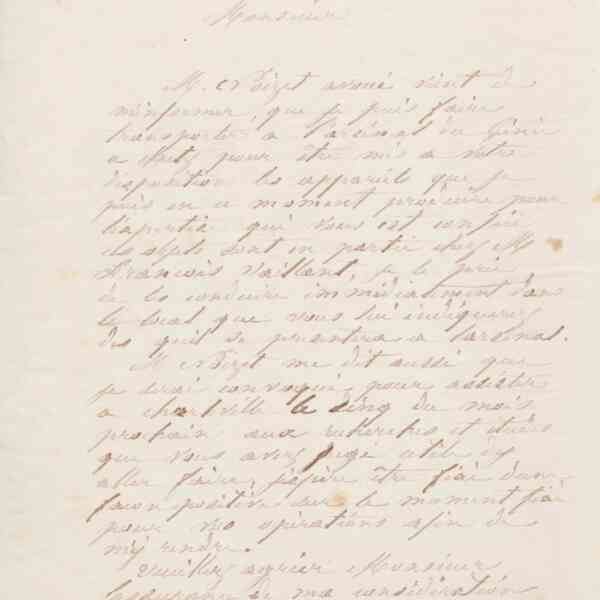 Monsieur
M. Noizet avoué vient de
m'informer, que je puis faire
transporter, a l'arsenal du Génie
a Metz pour être mis a votre
disposition les appareils que je
puis en ce moment procurer pour
l'expertise qui vous est confiée
ces objets sont en partie chez M
François Vaillant, je le prie
de les conduire immédiatement dans
le local que vous lui indiquerez
dès quil se présentera a l'arsenal.
M Noizet me dit aussi que
je serai convoqué pour assister
a charlville le cinq du mois
prochain aux recherches et études
que vous avez jugé utile d'y
aller faire, j'espère être fixé d'une
facon positive sur le moment fixé
pour vos opérations afin de
m'y rendre.
Veuillez agréer Monsieur
l'assurance de ma considération